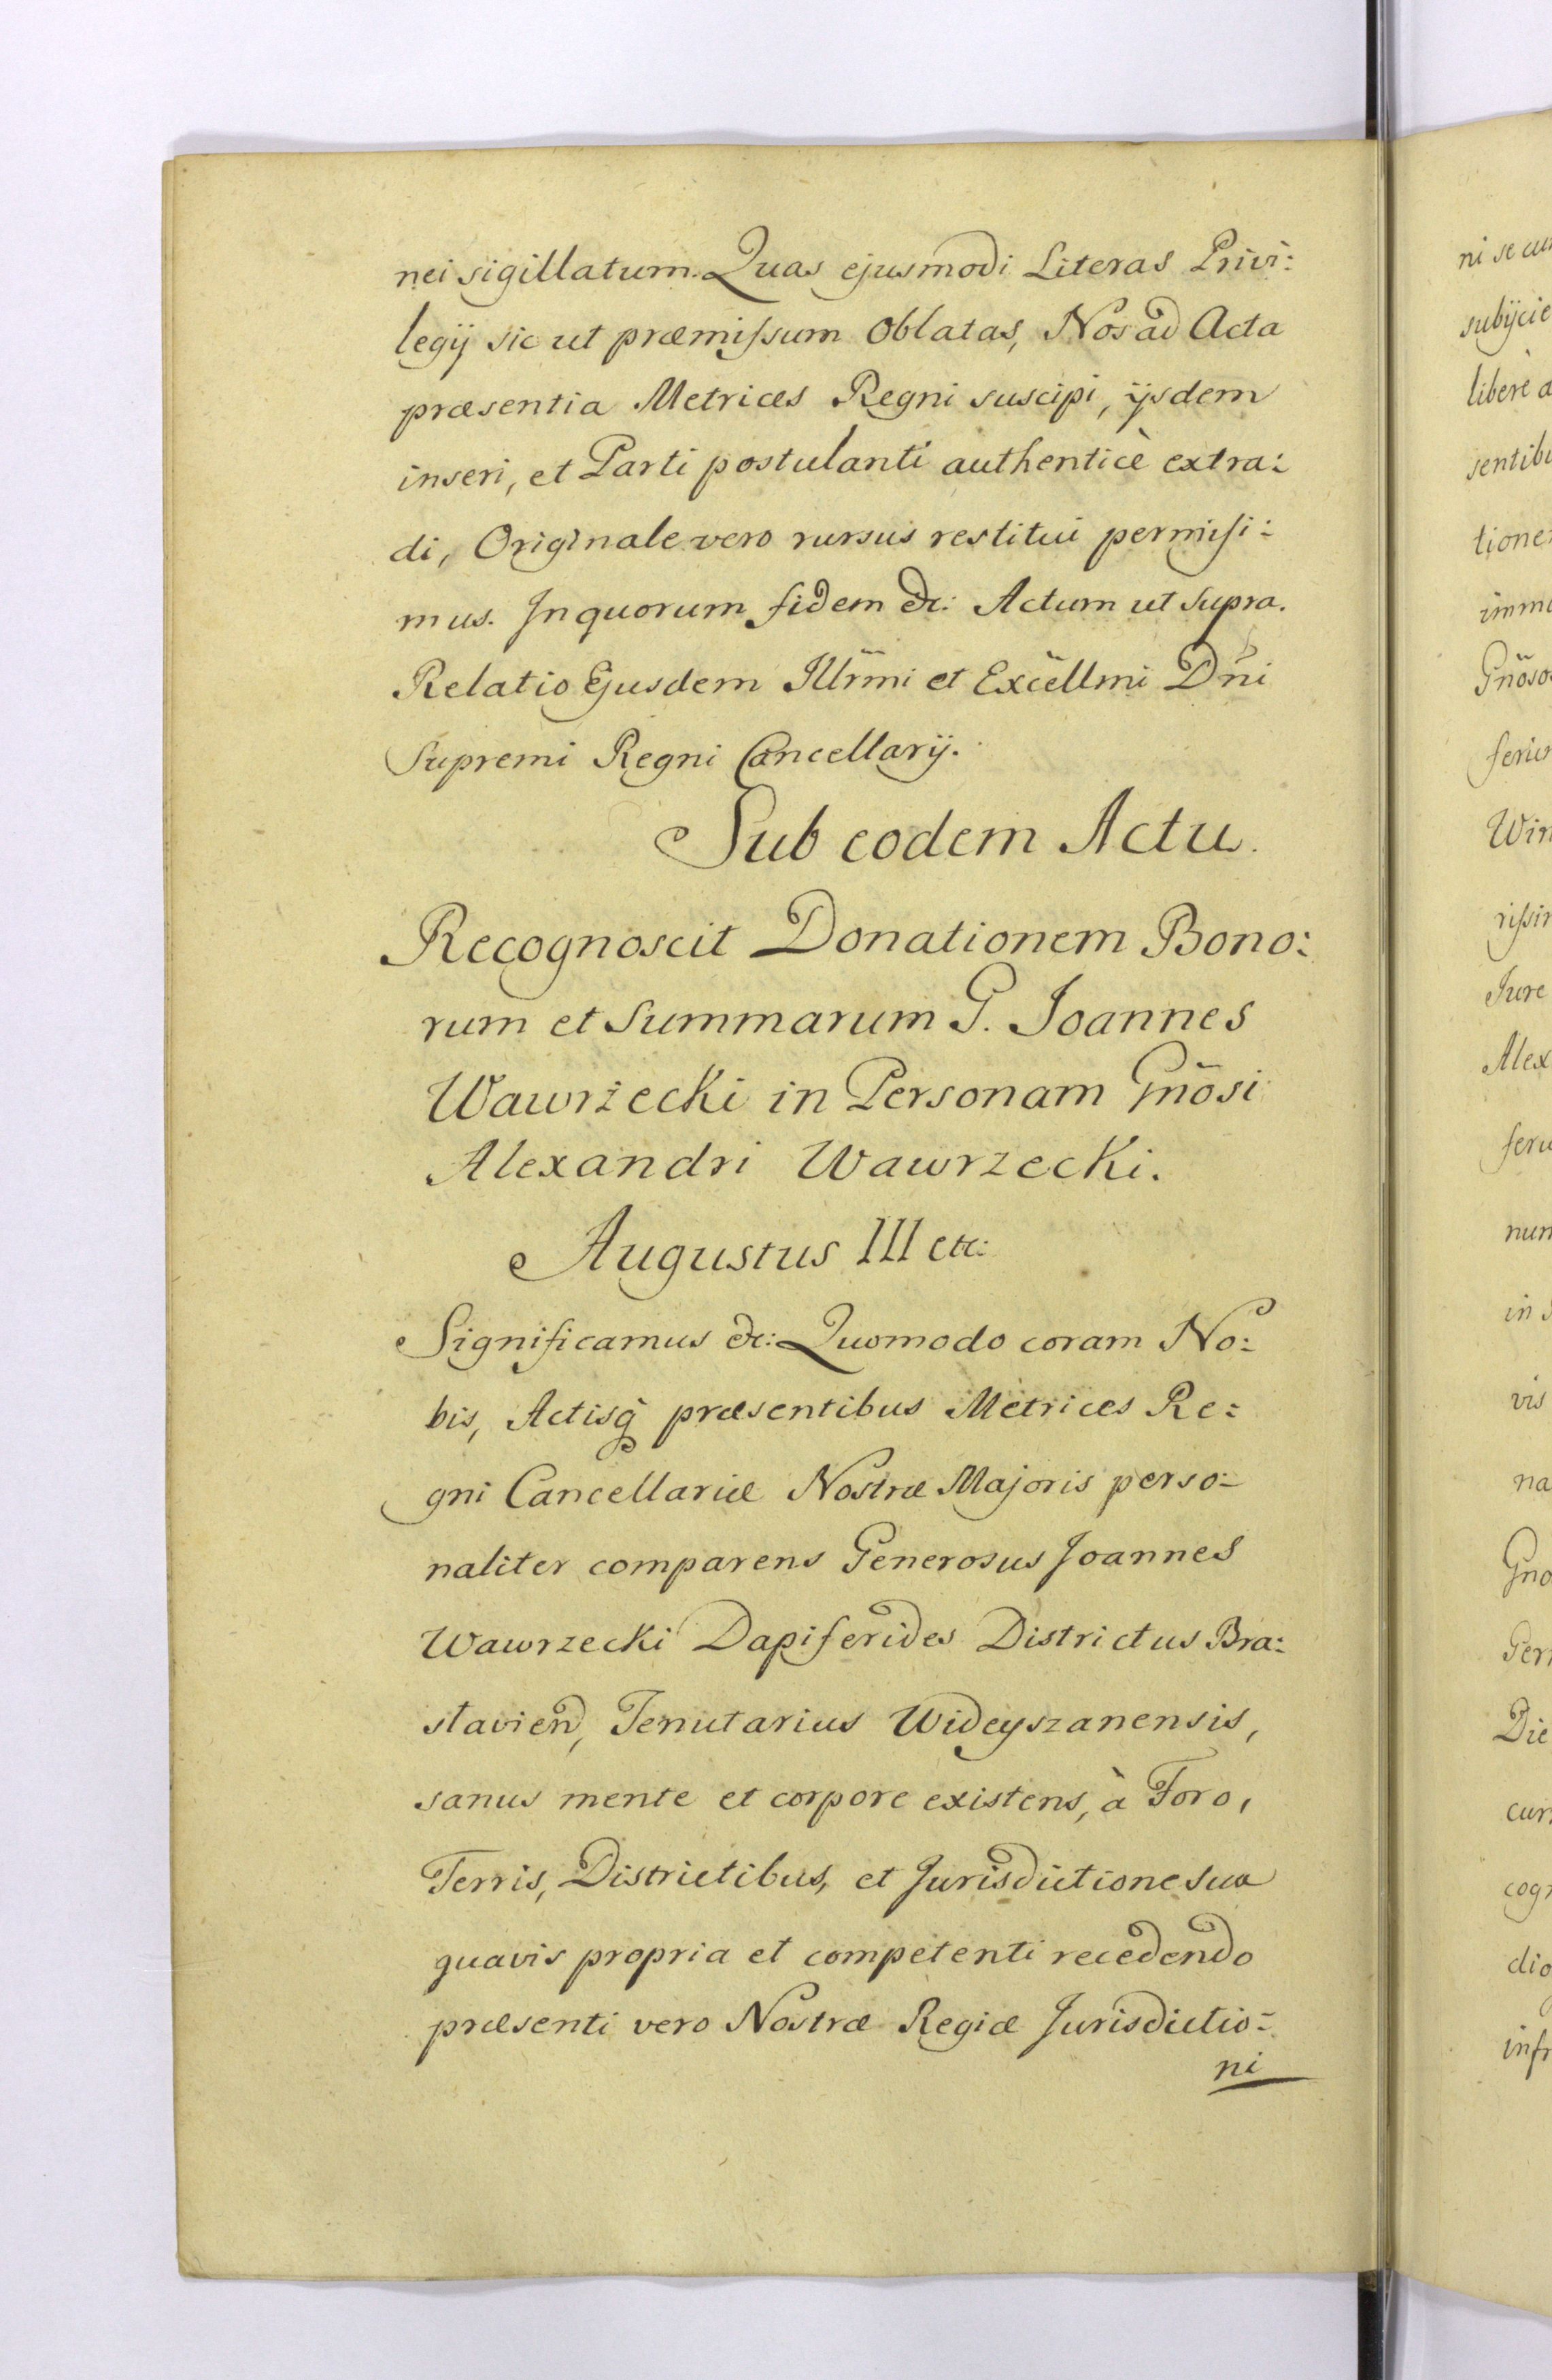 nei sigillatum. Quas ejusmodi Literas Privi:
legij sic ut præmiſsum Oblatas, Nos ad Acta
præsentia Metrices Regni suscipi, ijsdem
inseri, et Parti postulanti authenticè extra:
di, Originale vero rursus restitui permisi:
mus. In quorum fidem &c: Actum ut Supra.
Relatio Ejusdem Illr̃mi et Excẽllmi Dñi
Supremi Regni Cancellarij.
Sub eodem Actu.
Recognoscit Donationem Bono:
rum et Summarum G. Joannes
Wawrzecki in Personam Gñosi
Alexandri Wawrzecki.
Augustus III etc:
Significamus &c: Quomodo coram No:
bis, Actisq̃ præsentibus Metrices Re:
gni Cancellariæ Nostræ Majoris perso:
naliter comparens Generosus Joannes
Wawrzecki Dapiferides Districtus Bra:
slavien, Tenutarius Wideyszanensis,
sanus mente et corpore existens, à Foro,
Terris, Districtibus, et Jurisdictione sua
quavis propria et competenti recedendo
præsenti vero Nostræ Regiæ Jurisdictio:
ni
ni se cum
subijcie
liberè a
sentibu
tione
imm
Gñoso
feri
Win
riſsi
Jure
Alex
feri
nun
in
vis
na
Gno
Ger
Die
cur
cog
dio
infr